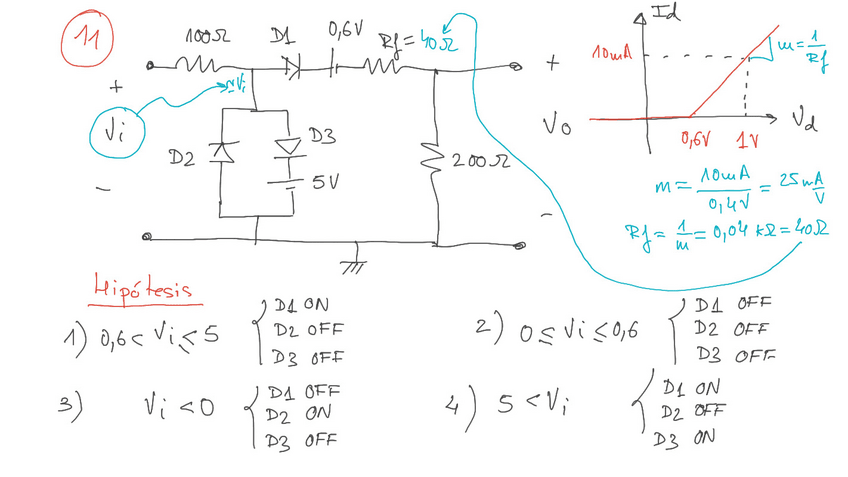 11
100Ω D1 0,6V Rf = 40Ω
+
≃Vi
Vi
D2
D3
5V
-
200Ω
+
Vo
-
Id
10mA
m = 1/Rf
0,6V 1V
Vd
m = 10mA/0,4V = 25 mA/V
Rf = 1/m = 0,04 kΩ = 40Ω
Hipótesis
1) 0,6 < Vi ≤ 5 { D1 ON
D2 OFF
D3 OFF
2) 0 ≤ Vi ≤ 0,6 { D1 OFF
D2 OFF
D3 OFF
3) Vi < 0 { D1 OFF
D2 ON
D3 OFF
4) 5 < Vi { D1 ON
D2 OFF
D3 ON